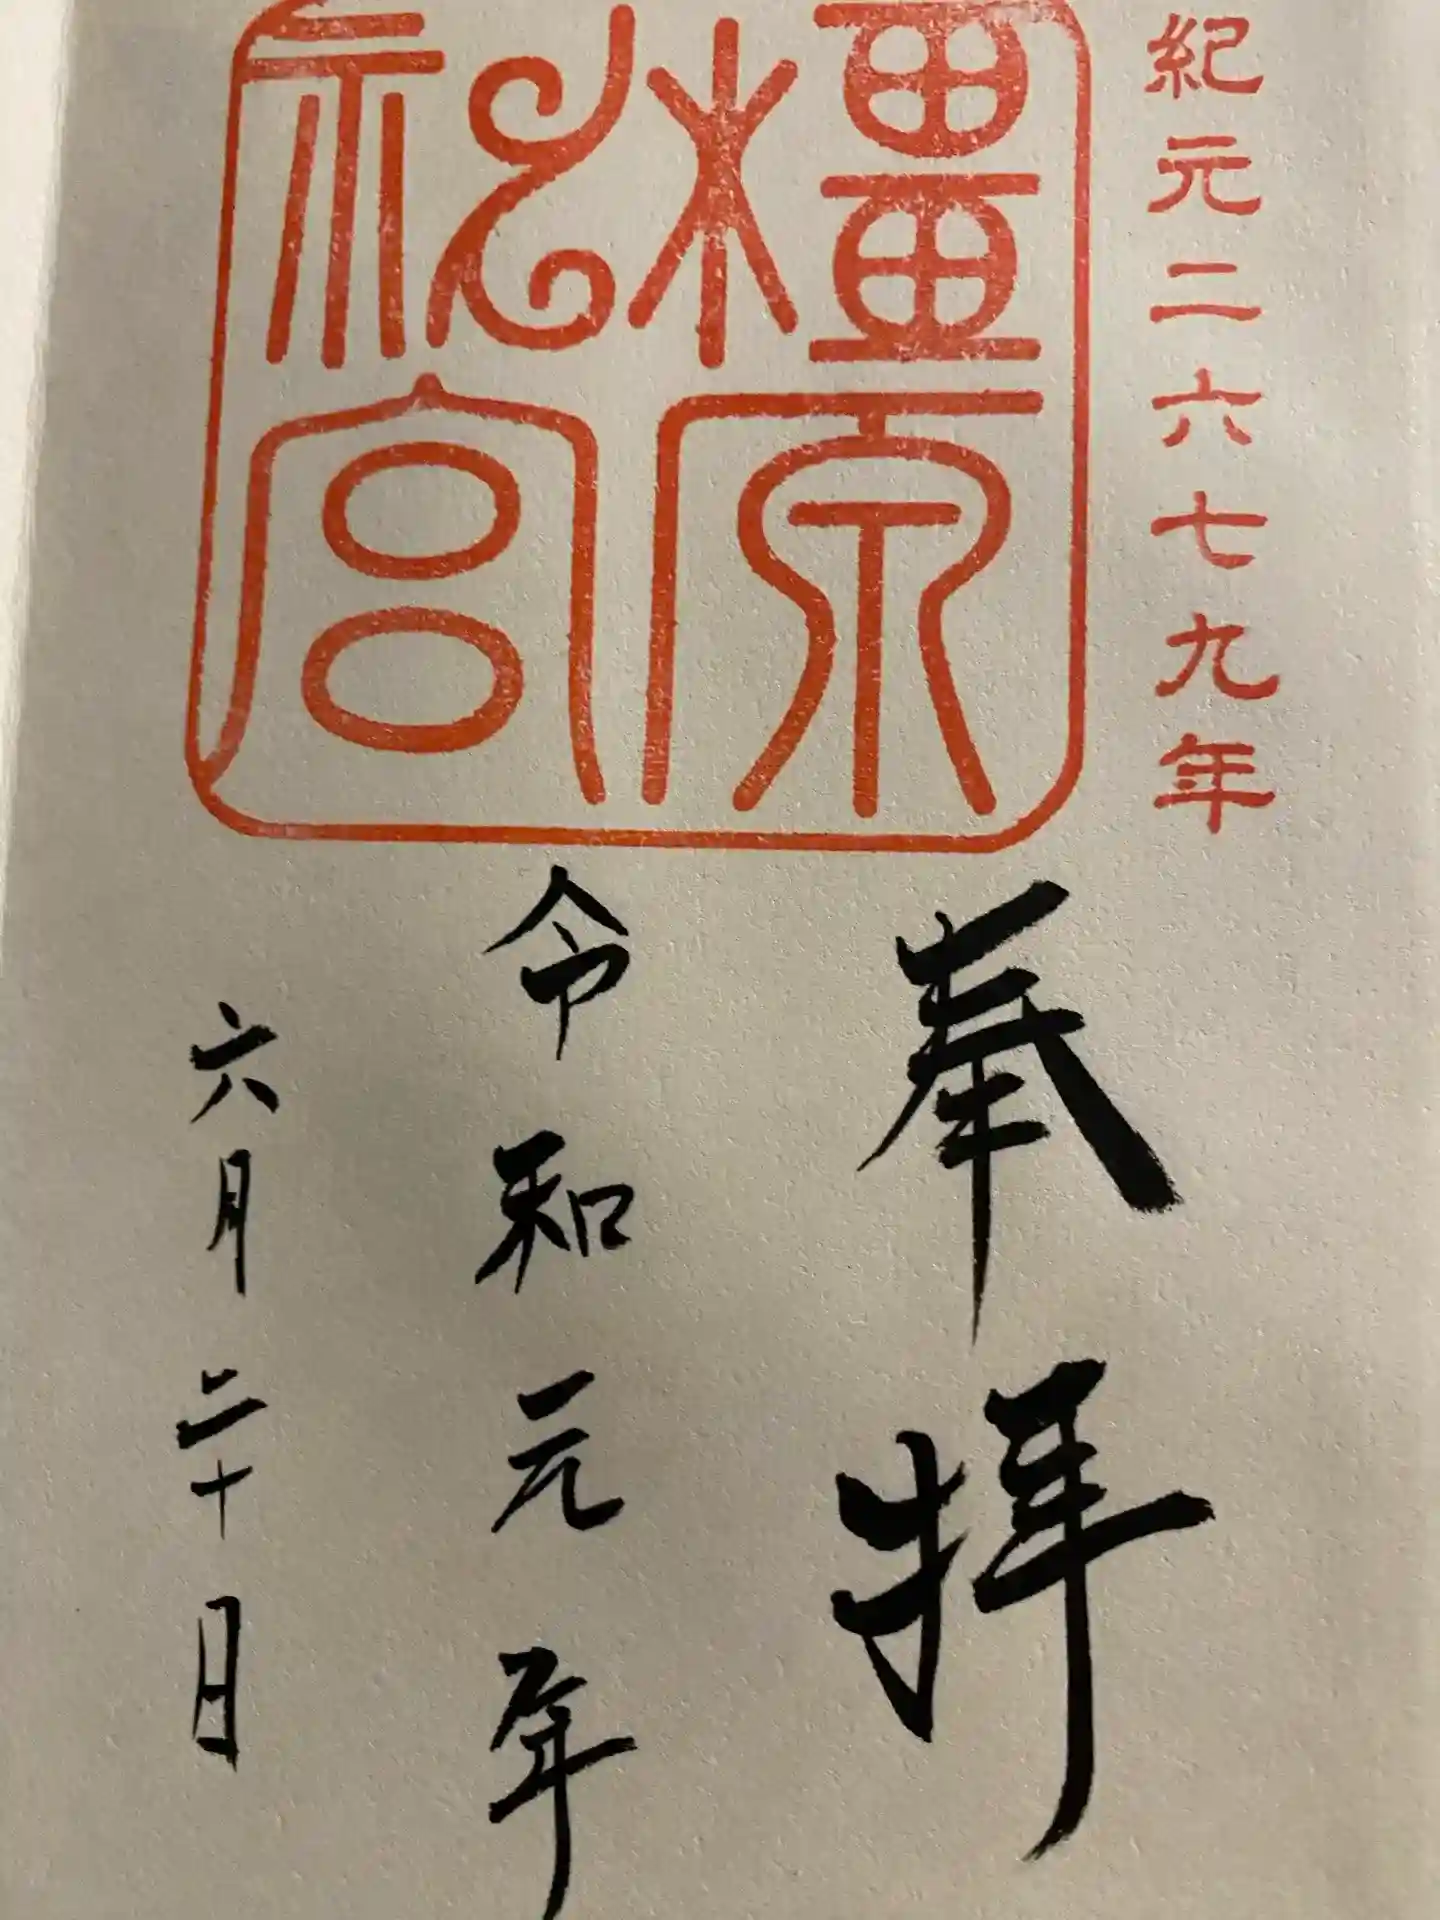 紀元二六七九年
橿原
神宮
奉拝
令和元年
六月二十日